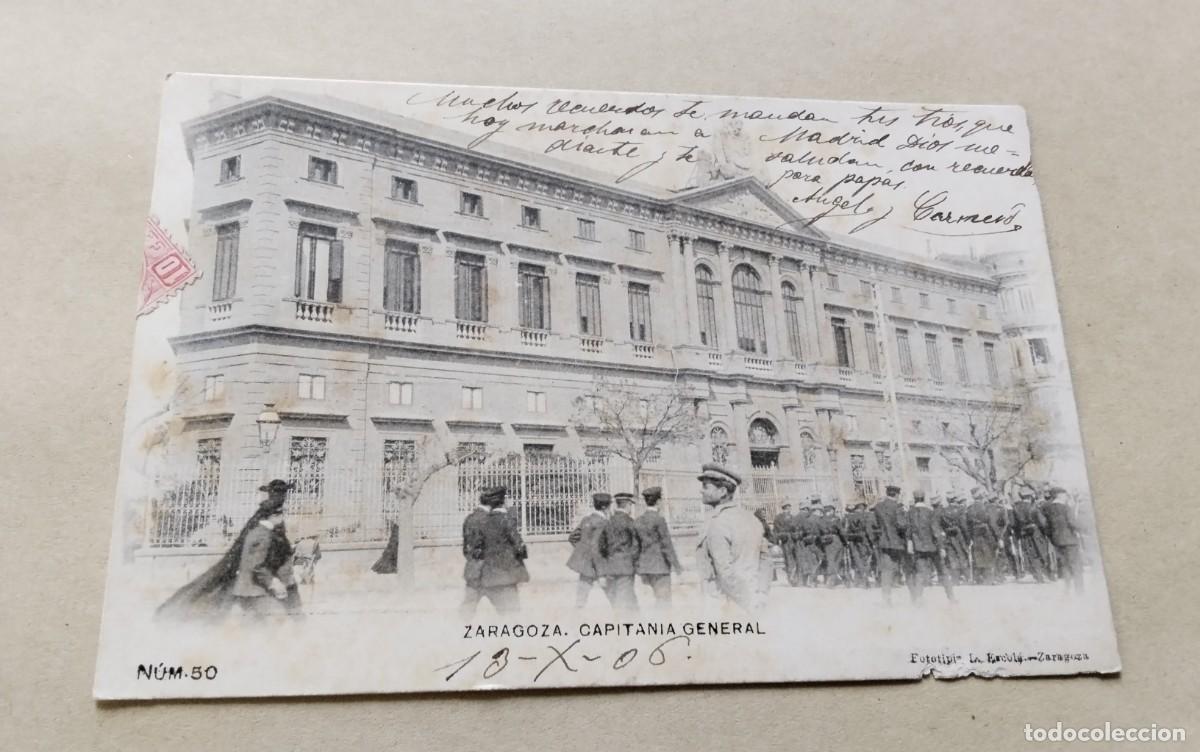 Muchos recuerdos te mandan tus tios, que
hoy marcharan a Madrid Dios me-
diante y te saludan, con recuerdos
para papás.
Angel y Carmen
10
ZARAGOZA. CAPITANIA GENERAL
13-X-06.
NÚM. 50
Fototipia L. Escolá.-Zaragoza
todocoleccion